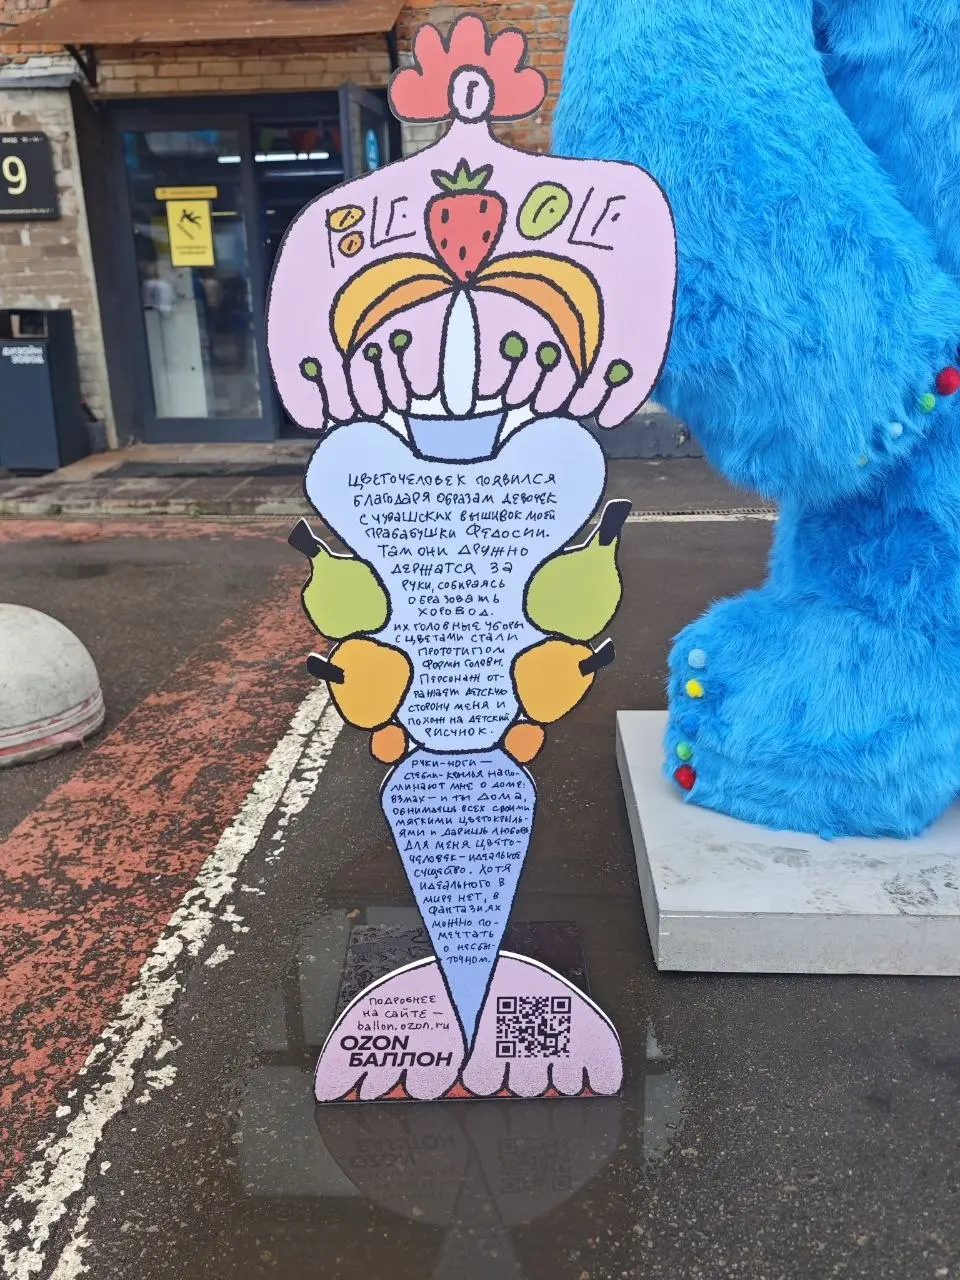 9
ДИЗАЙН
ЗАВОД
ЦВЕТОЧЕЛОВЕК ПОЯВИЛСЯ
БЛАГОДАРЯ ОБРАЗАМ ДЕВОЧЕК
С ЧУВАШСКИХ ВЫШИВОК МОЕЙ
ПРАБАБУШКИ ФЕДОСИИ.
ТАМ ОНИ ДРУЖНО
ДЕРЖАТСЯ ЗА
РУКИ, СОБИРАЯСЬ
ОБРАЗОВАТЬ
ХОРОВОД.
ИХ ГОЛОВНЫЕ УБОРЫ
С ЦВЕТАМИ СТАЛИ
ПРОТОТИПОМ
ФОРМЫ ГОЛОВЫ.
ПЕРСОНАЖ ОТ-
РАЖАЕТ ДЕТСКУЮ
СТОРОНУ МЕНЯ И
ПОХОЖ НА ДЕТСКИЙ
РИСУНОК.
РУКИ-НОГИ —
СТЕБЛИ-КРЫЛЬЯ НАПО-
МИНАЮТ МНЕ О ДОМЕ:
ВЗМАХ — И ТЫ ДОМА,
ОБНИМАЕШЬ ВСЕХ СВОИМИ
МЯГКИМИ ЦВЕТОКРЫЛЬ-
ЯМИ И ДАРИШЬ ЛЮБОВЬ
ДЛЯ МЕНЯ ЦВЕТО-
ЧЕЛОВЕК — ИДЕАЛЬНОЕ
СУЩЕСТВО. ХОТЯ
ИДЕАЛЬНОГО В
МИРЕ НЕТ, В
ФАНТАЗИЯХ
МОЖНО ПО-
МЕЧТАТЬ
О НЕСБЫ-
ТОЧНОМ.
ПОДРОБНЕЕ
НА САЙТЕ —
ballon.ozon.ru
OZON
БАЛЛОН